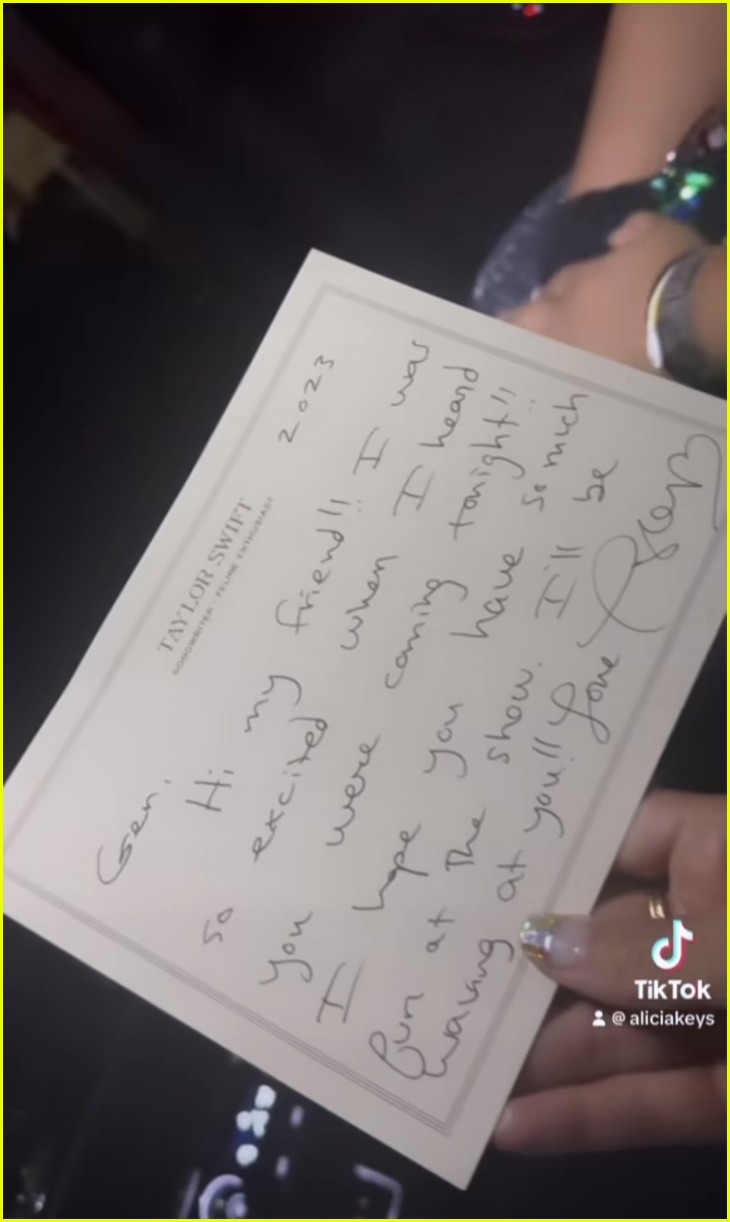 TAYLOR SWIFT
SONGWRITER · FELINE ENTHUSIAST
2023
Gen,
Hi my friend!! I was
so excited when I heard
you were coming tonight!!
I hope you have so much
fun at the show. I'll be
waving at you!! Love
TikTok
@aliciakeys